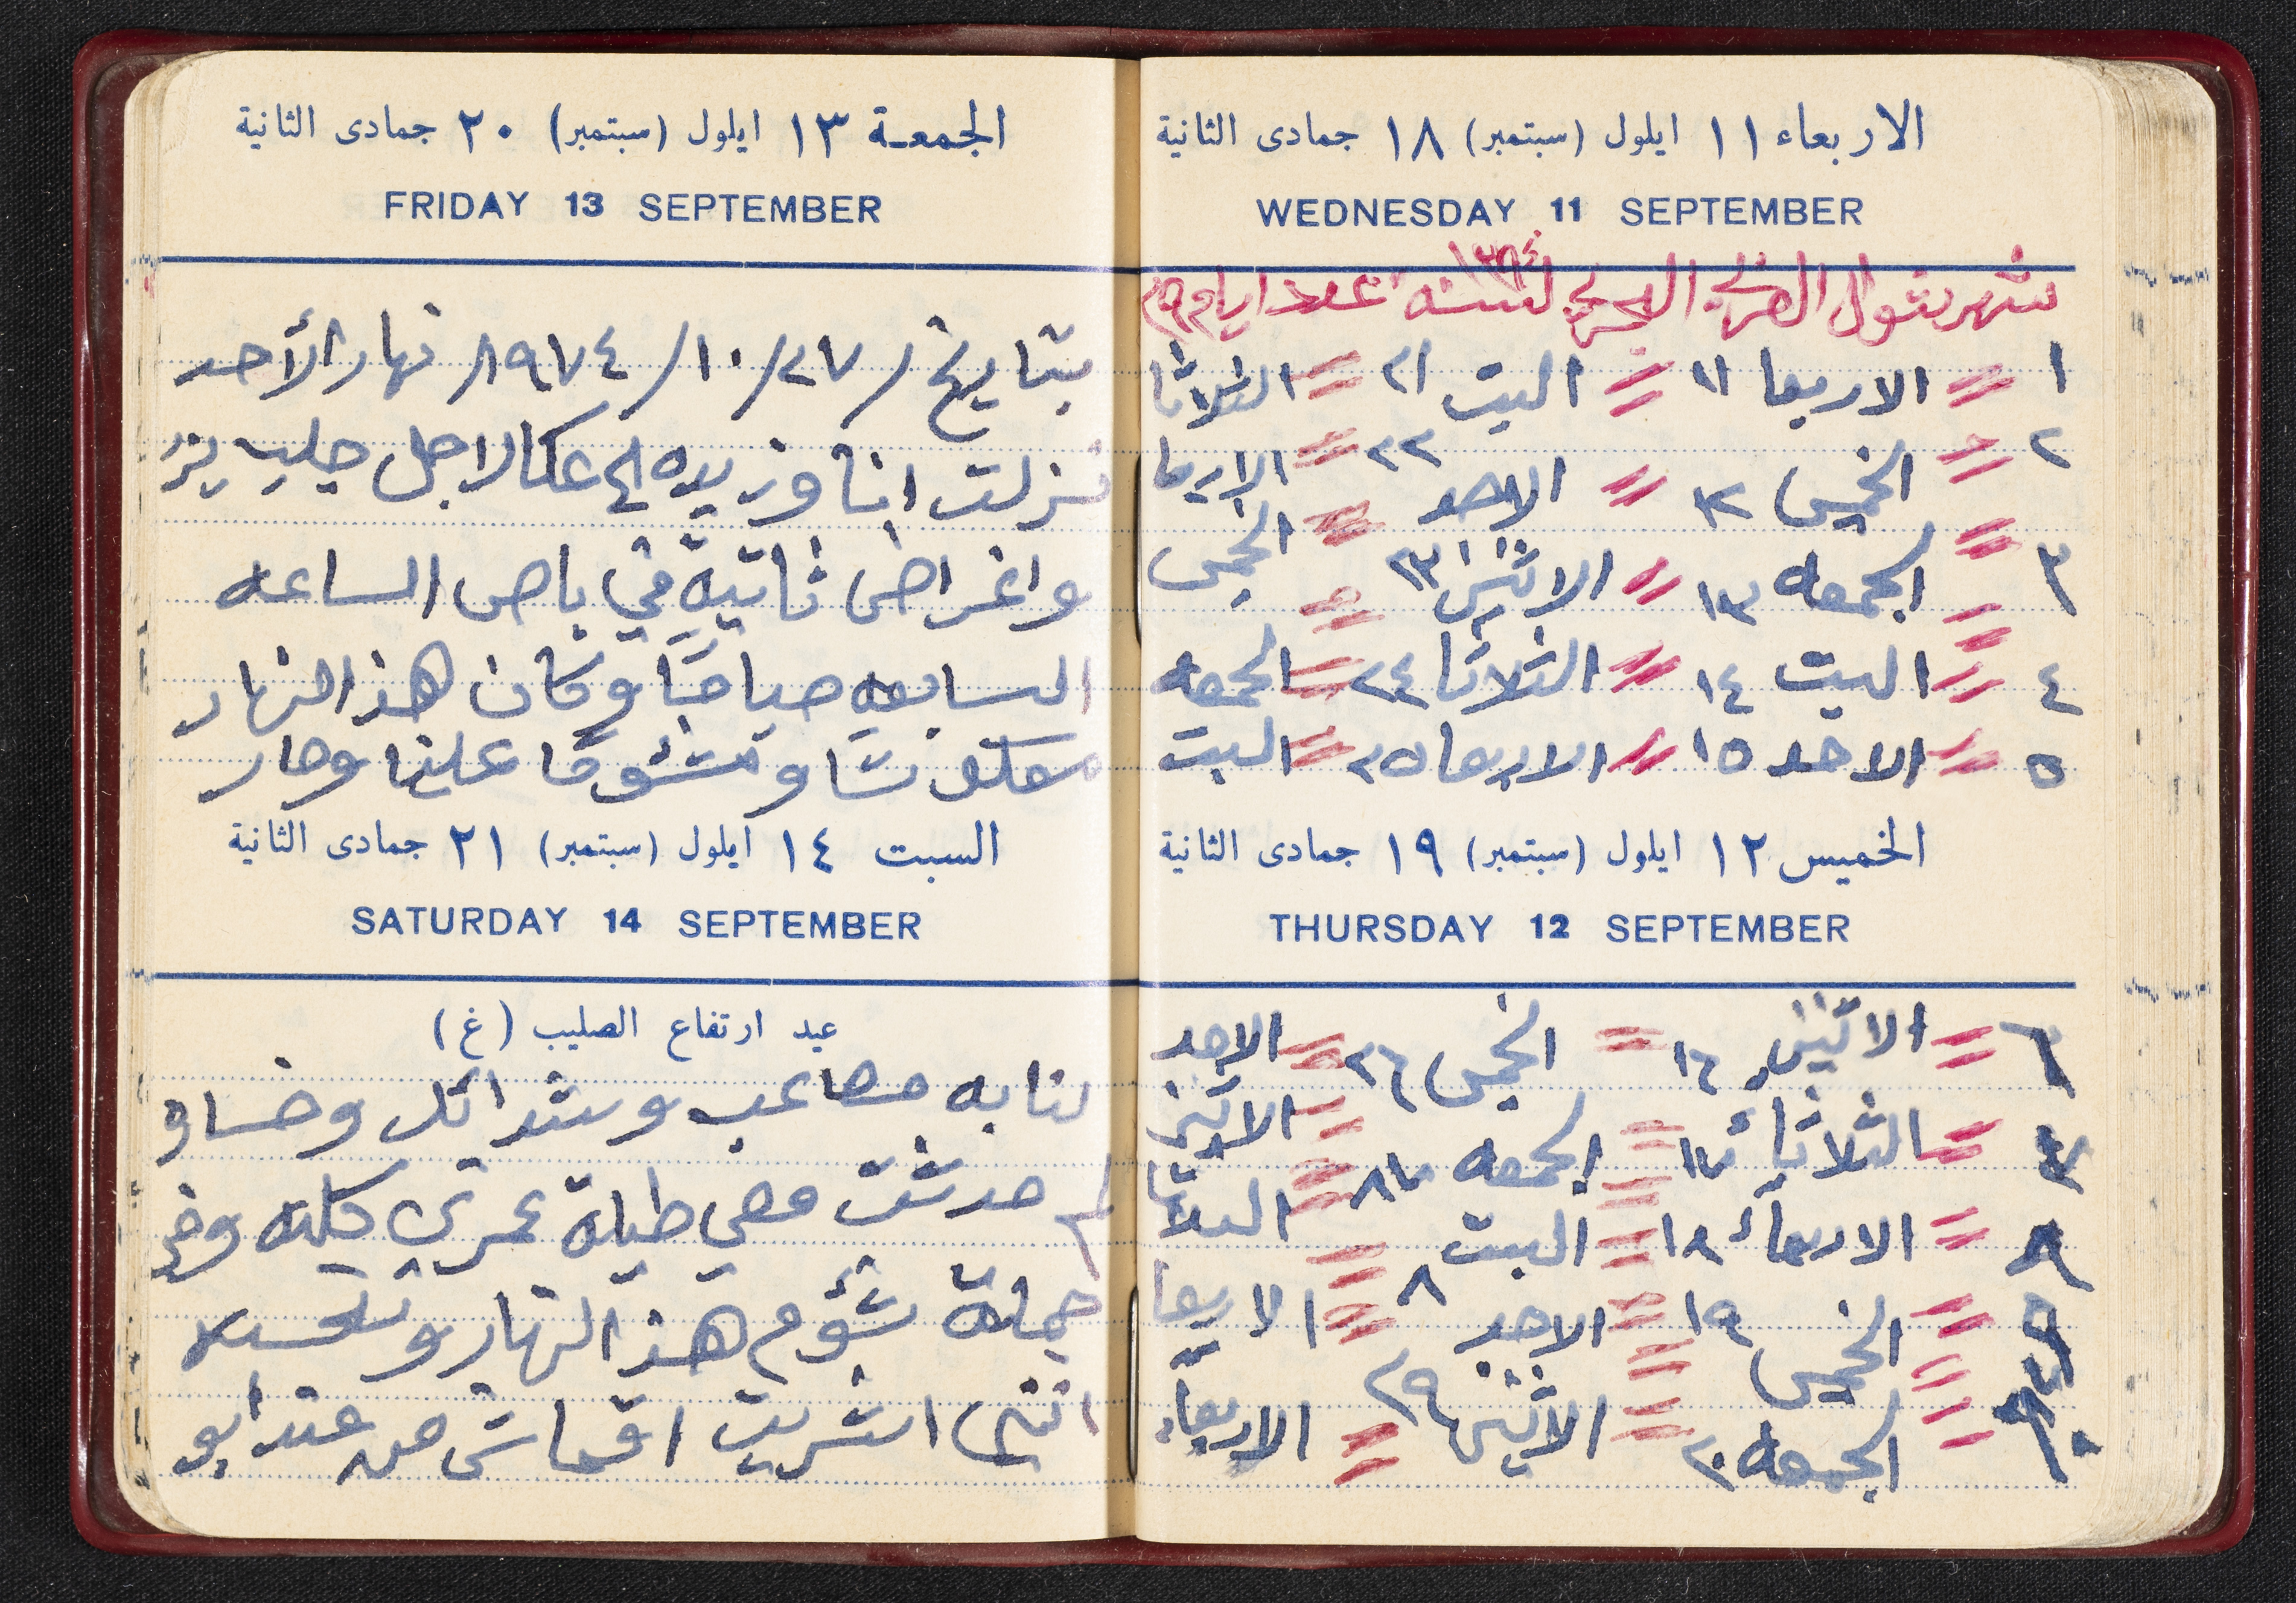 الاربعاء ١١ ايلول (سبتمبر) ١٨ جمادى الثانية
WEDNESDAY 11 SEPTEMBER
١٣٩٤
شهر شوال لسنه عدد ايام ٢٩
١ = الاربعا ١١ = السبت ٢١ = الثلاثا
٢ = الخميس ١٢ = الاحد ٢٢ = الاربعا
٣ = الجمعه ١٣ = الاثنين ٢٣ = الخميس
٤ = السبت ١٤ = الثلاثا ٢٤ = الجمعه
٥ = الاحد ١٥ = الاربعا ٢٥ = السبت
الخميس ١٢ ايلول (سبتمبر) ١٩ جمادى الثانية
THURSDAY 12 SEPTEMBER
٦ = الاثنين ١٦ = الخميس ٢٦ = الاحد
٧ = الثلاثاء ١٧ = الجمعه = الاثنين
٨ = الاربعاء ١٨ = السبت = الثلاثا
٩ = الخميس ١٩ = الاحد = الاربعا
١٠ = الجمعه ٢٠ = الاثنين ٢٩ = الاربعاء
الجمعة ١٣ ايلول (سبتمبر) ٢٠ جمادى الثانية
FRIDAY 13 SEPTEMBER
بتاريخ / ٢٧ / ١٠ / ١٩٧٤ / نهار الأحد
نزلت انا وزيده الى عكا لاجل جليب
واغراض ثانية في باص الساعه
السابعه صباحًا وكان هذا النهار
ومشئومًا علينا وصار
السبت ١٤ ايلول (سبتمبر) ٢١ جمادى الثانية
SATURDAY 14 SEPTEMBER
عيد ارتفاع الصليب (غ)
لنا به مصاعب وشدائد
لم حدثت معي طيلة عمري كله
جملة شؤم هذا النهار
اننى اشريت اقماش من عند ابو